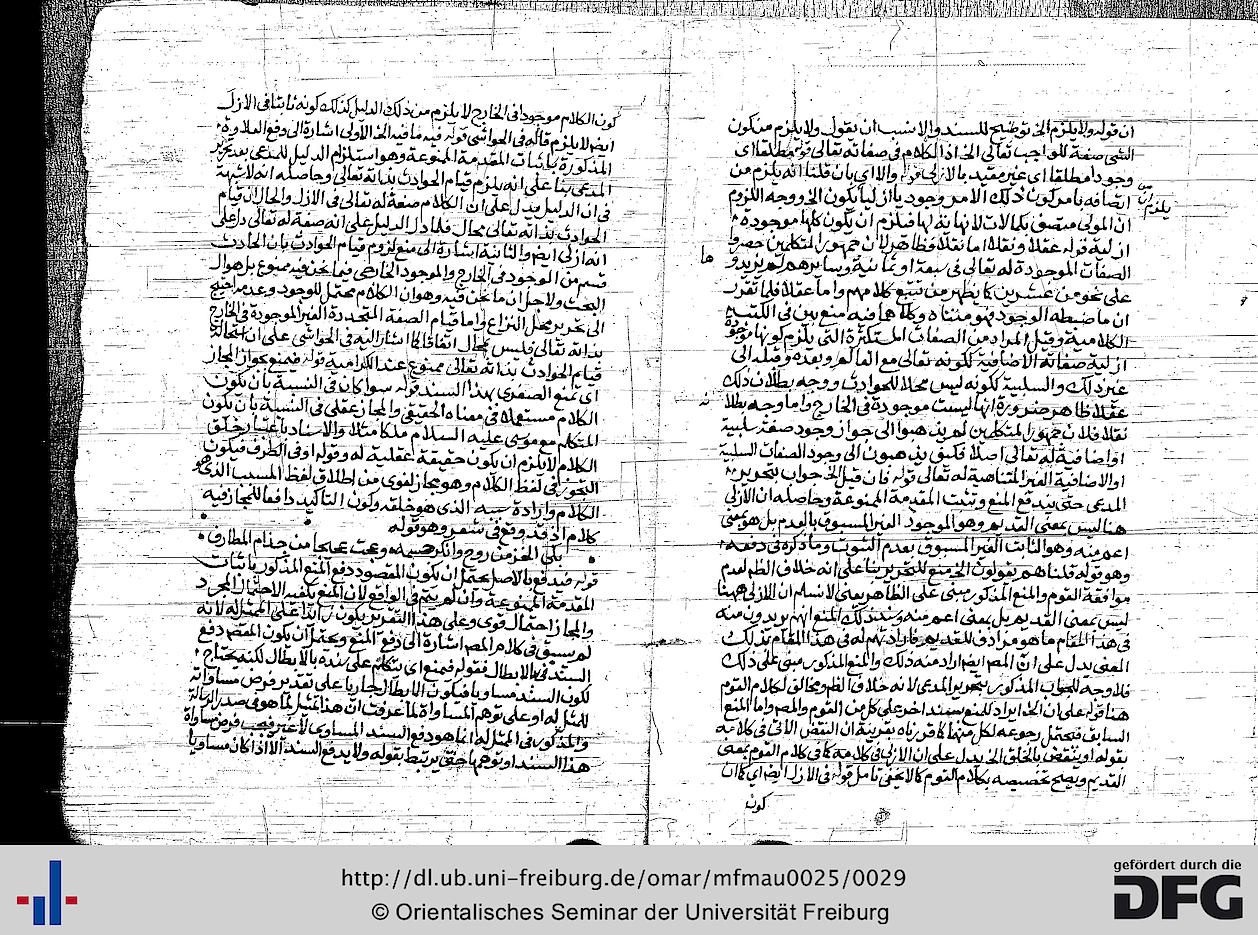 ان قوله ولا يلزم الخ توضيح للسند والانسب ان يقول ولا يلزم من كون
الشى صفة للواجب تعالى الخ اذ الكلام في صفاته تعالى قوله مطلقا اى
وجودا مطلقا اى غير مقيد بالازلى قوله والا اى بان قلنا انه يلزم من
اتصافه بامر كون ذلك الامر وجوديا ازليا يكون الخ ووجه اللزوم
يلزم
ان المولى متصف بكمالات لا نهاية لها فيلزم ان يكون كلها موجودة
ازلية قوله عقلا ونقلا اما نقلا فظاهر لان جمهور المتكلمين حصروا
الصفات الموجودة له تعالى في سبعة او ثمانية وسايرهم لم يزيدوا
ها
على نحو من عشرين كما يظهر من تتبع كلامهم واما عقلا فلما تقرر
ان ما ضبطه الوجود فهو متناه وكلاهما فيه منع بين في الكتب
الكلامية وقيل المراد من الصفات المتكثرة التى يلزم كونها موجودة
ازلية صفاته الاضافية ككونه تعالى مع العالم وبعده وقبله الى
غير ذلك والسلبية ككونه ليس محلا للحوادث ووجه بطلان ذلك
عقلا ظاهر ضرورة انها ليست موجودة في الخارج واما وجه بطلا
نه
نقلا فلان جمهور المتكلمين لم يذهبوا الى جواز وجود صفة سلبية
او اضافية له تعالى اصلا فكيف يذهبون الى وجود الصفات السلبية
او الاضافية الغير المتناهية له تعالى قوله فان قيل الخ جواب بتحرير
المدعى حتى يندفع المنع وتثبت المقدمة الممنوعة وحاصله ان الازلى
هنا ليس بمعنى القديم وهو الموجود الغير المسبوق بالعدم بل هو بمعنى
اعم منه وهو الثابت الغير المسبوق بعدم الثبوت وما ذكره في دفعه
وهو قوله قلنا هم يقولون الخ منع للتحرير بناء على انه خلاف الظ لعدم
موافقة القوم والمنع المذكور مبنى على الظاهر يعنى لا نسلم ان الازلى ههنا
ليس بمعنى القديم بل بمعنى اعم منه وسند ذلك المنع انهم يريدون منه
في هذا المقام ما هو مرادف للقديم فارادتهم له في هذا المقام بذلك
المعنى يدل على ان المص ايضا اراد منه ذلك والمنع المذكور مبنى على ذلك
فلا وجه للجواب المذكور بتحرير المدعى لانه خلاف الظ ومخالف لكلام القوم
هنا قوله على ان الخ ايراد للمنع بسند اخر على كل من القوم والمص واما المنع
السابق فيحتمل رجوعه لكل منهما كما قررناه بقرينة ان النقض الاتى في كلامه
بقوله او ينتقض بالخلق الخ يدل على ان الازلى في كلامه كما في كلام القوم بمعنى
القديم ويصح تخصيصه بكلام القوم كما لا يخفى تامل قوله في الازل ايضا اى كما ان
كون
كون الكلام موجودا في الخارج لا يلزم من ذلك الدليل كذلك كونه ثابتا في الازل
ايضا لا يلزم قاله في الحواشى قوله فيه ما فيه الخ الاولى اشارة الى دفع العلاوة
المذكورة باثبات المقدمة الممنوعة وهو استلزام الدليل للمدعى بعد تحرير
المدعى بناء على انه يلزم قيام الحوادث بذاته تعالى وحاصله انه لا شبهة
في ان الدليل يدل على ان الكلام صفة له تعالى في الازل والحال ان قيام
الحوادث بذاته تعالى محال فلما دل الدليل على انه صفة له تعالى دل على
انه ازلى ايضا والثانية اشارة الى منع لزوم قيام الحوادث بان الحادث
قسم من الوجود في الخارج والموجود الخارجى فيما نحن فيه ممنوع بل هو اول
البحث ولاجل ان ما نحن فيه وهو ان الكلام محتمل للوجود وعدمه احتيج
الى تحرير محل النزاع واما قيام الصفة المتجددة الغير الموجودة في الخارج
بذاته تعالى فليس بمحال اتفاقا كما اشار اليه في الحواشى على ان استحالة
قيام الحوادث بذاته تعالى ممنوع عند الكرامية قوله فيمنع بجواز المجاز
اى تمنع الصغرى بهذا السند قوله سوا كان في النسبة بان يكون
الكلام مستعملا في معناه الحقيقى والمجاز عقلى في النسبة بان يكون
المتكلم مع موسى عليه السلام ملكا مثلا والاسناد باعتبار خلق
الكلام لا يلزم ان يكون حقيقة عقلية له وقوله او في الطرف فيكون
التجوز في لفظ الكلام وهو مجاز لغوى من اطلاق لفظ المسبب الذى هو
الكلام وارادة سببه الذى هو خلقه وكون التاكيد دافعا للمجاز فيه
كلام اذ قد وقع في شعر وهو قوله
بكى الخز من روح وانكر جسمه وعجت عجيجا من جذام المطارف
قوله فيندفع بالاصل يحتمل ان يكون المقصود دفع المنع المذكور باثبات
المقدمة الممنوعة وان لم يتم في الواقع لان المنع يكفيه الاحتمال المجرد
والمجاز احتمال قوى وعلى هذا التقرير يكون زائدا على الممثل له لانه
لم يسبق في كلام المص اشارة الى دفع المنع ويحتمل ان يكون المقص دفع
السند بالابطال فقوله فيمنع اى يتكلم على سنده بالابطال لكنه يحتاج
لكون السند مساويا فيكون الابطال جاريا على تقدير فرض مساواته
للمثل له او على توهم المساواة لما عرفت ان هذا تمثيل لما هو في صدر الرسالة
والمذكور في الممثل له انما هو دفع السند المساوى لا غير فيجب فرض مساواة
هذا السند او توهمها حتى يرتبط بقوله ولا يدفع السند الا اذا كان مساويا
http://dl.ub.uni-freiburg.de/omar/mfmau0025/0029
© Orientalisches Seminar der Universität Freiburg
gefördert durch die
DFG